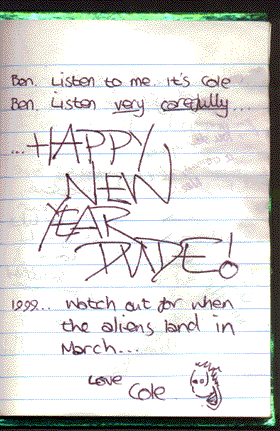 Ben. Listen to me. It's Cole
Ben. Listen very carefully...
...HAPPY
NEW
YEAR
DUDE!
1999... Watch out for when
the aliens land in
March...
Love
Cole